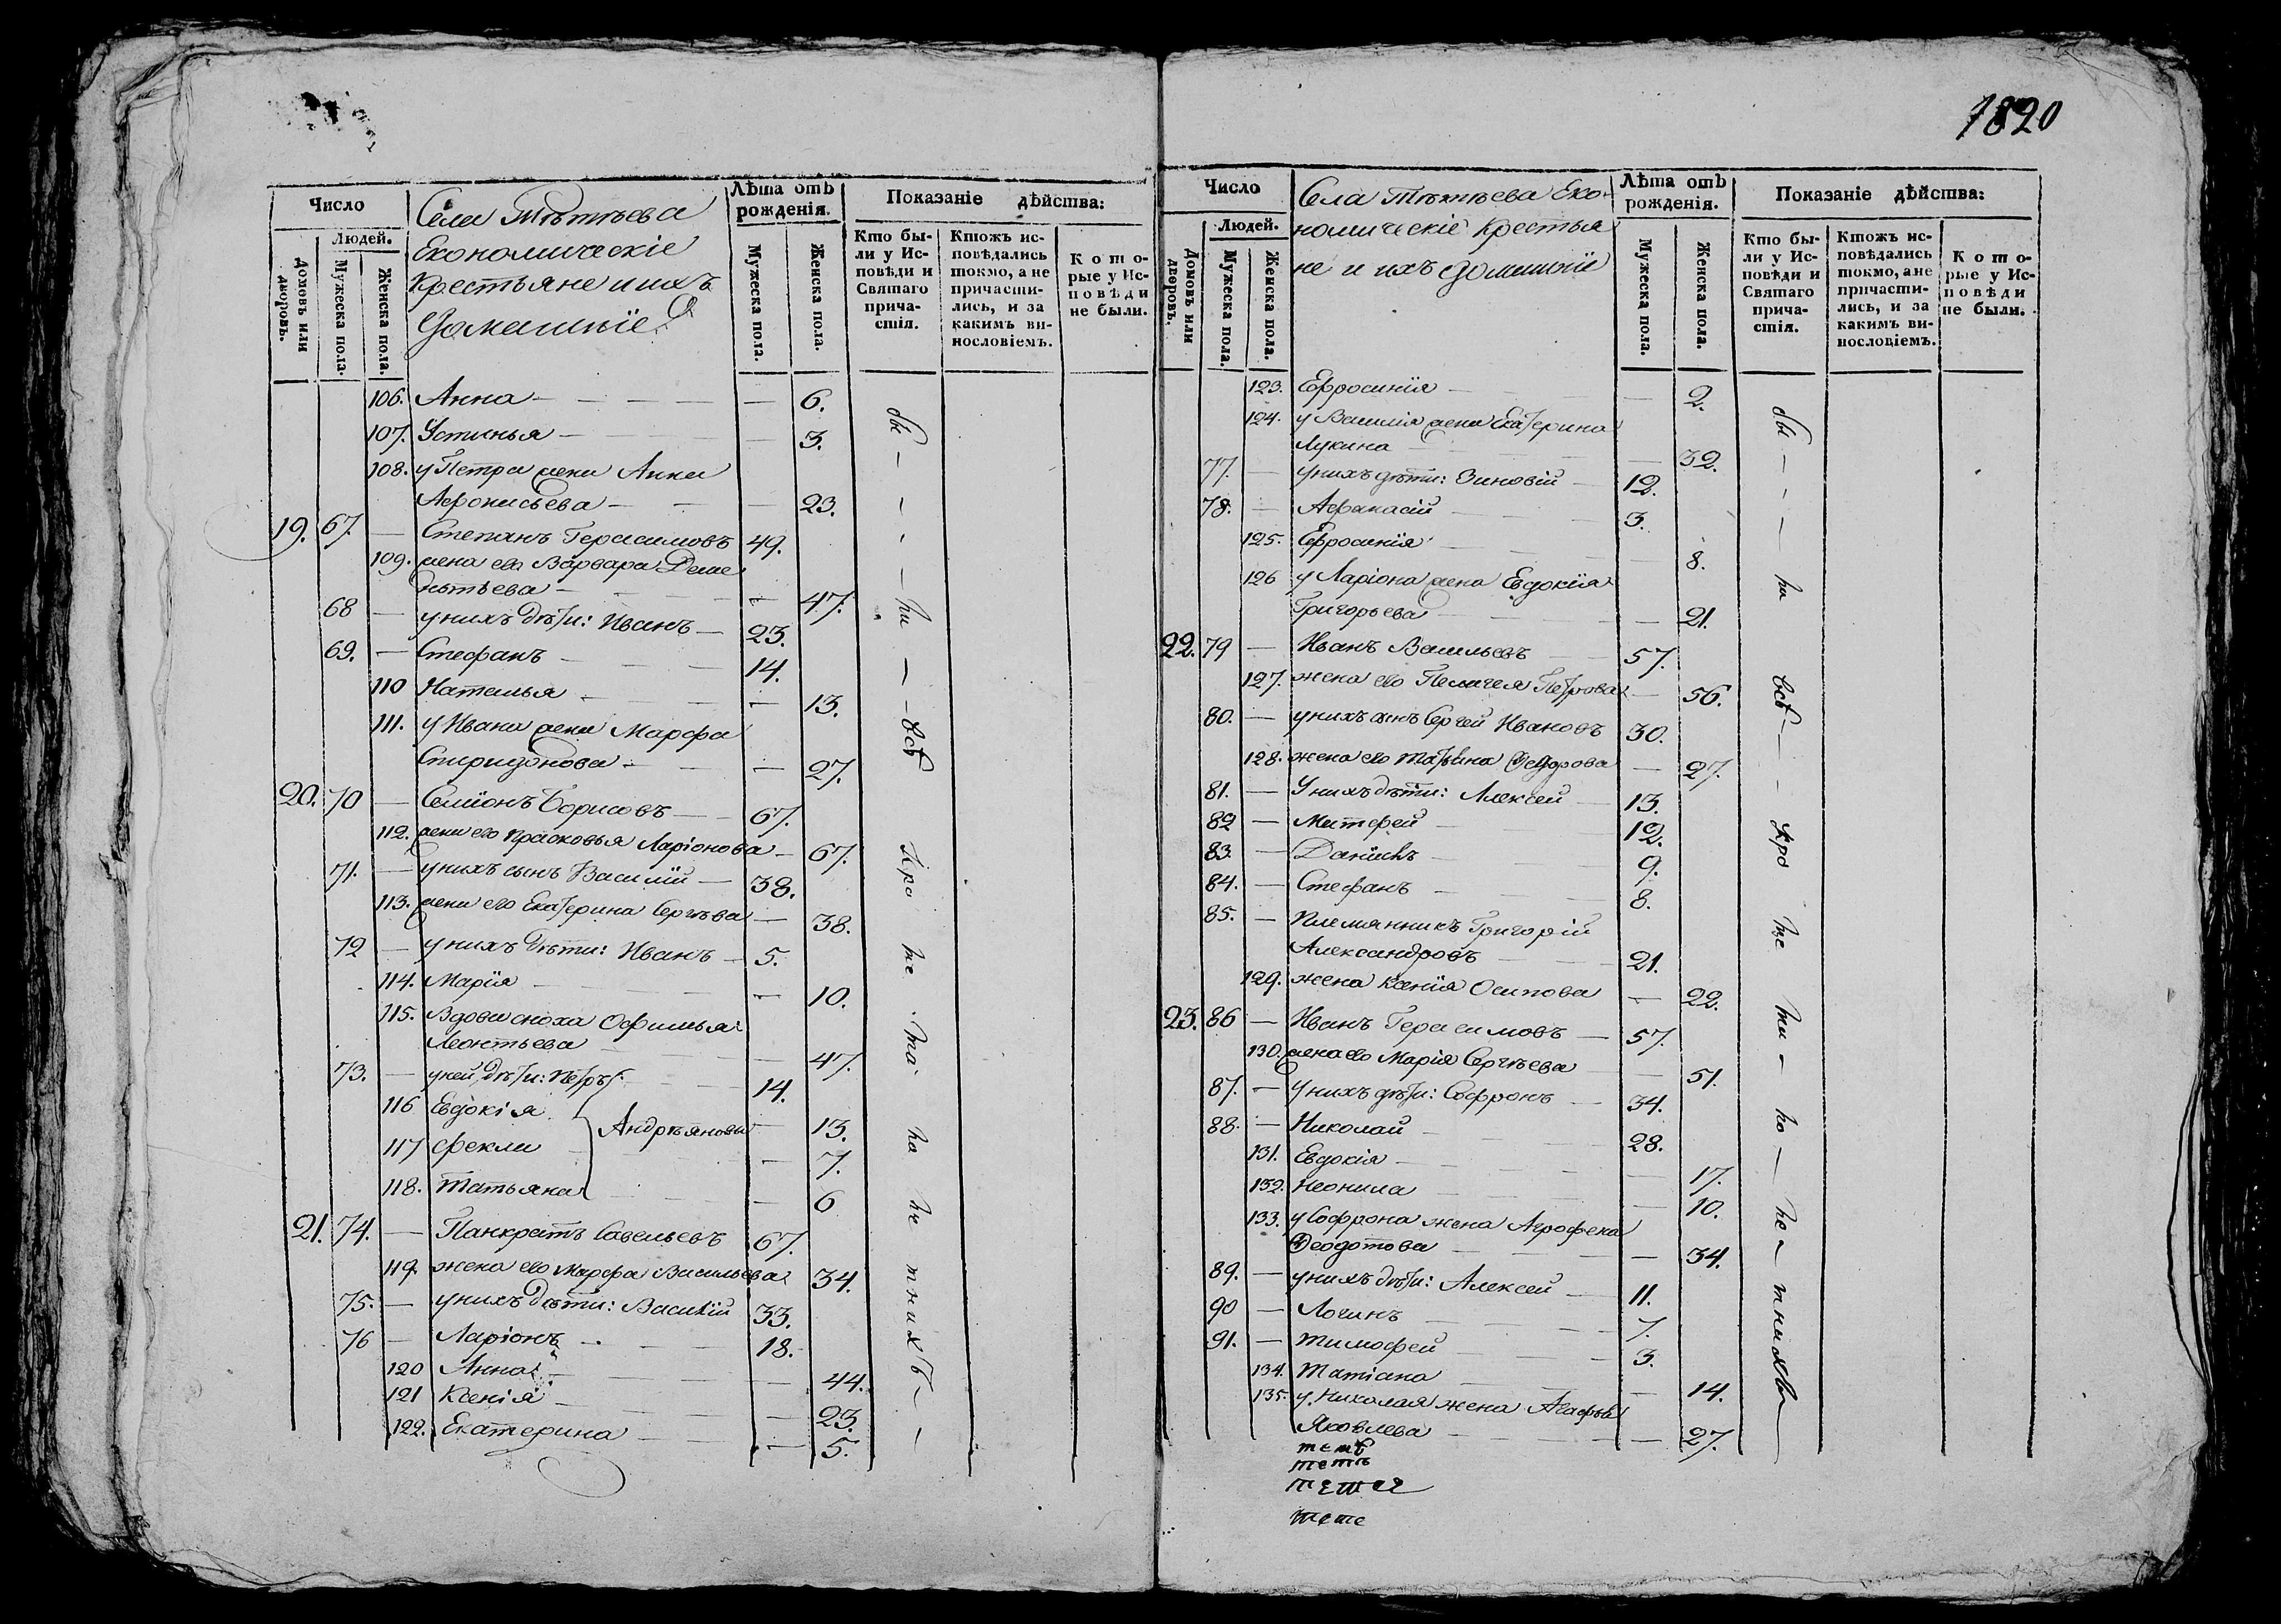 1820
Число
Людей.
Домовъ или дворовъ.
Мужеска пола.
Женска пола.
Села Тѣтѣева
Економическіе
Крестьяне и ихъ
Домашніе
Лѣта отъ рожденія.
Мужеска пола.
Женска пола.
Показаніе дѣйства:
Кто бы-
ли у Ис-
повѣди и
Святаго
прича-
стія.
Ктожъ ис-
повѣдались
токмо, а не
причасти-
лись, и за
какимъ ви-
нословіемъ.
Кото-
рые у Ис-
повѣди
не были.
106. Анна — 6.
107. Устинья — 3.
108. у Петра жена Анна
Афонасьева — 23.
19. 67. — Степанъ Герасимовъ 49.
109. жена его Варвара Деме
нтьева — 47.
68 — у нихъ дѣти: Иванъ — 23.
69. — Стефанъ — 14.
110 Наталья — 13.
111. у Ивана жена Марфа
Спиридонова — 27.
20. 70 — Семіонъ Борисовъ — 67.
112. жена его Прасковья Ларіонова — 67.
71. — у нихъ сынъ Василій — 38.
113. жена его Екатерина Сергѣева — 38.
72 — у нихъ дѣти: Иванъ — 5.
114. Марія — 10.
115. Вдова сноха Офимья
Леонтьева — 47.
73. — у ней дѣти: Петръ 14.
116 Евдокія 13.
Андрѣяновы
117 Фекла — 7.
118. Татьяна — 6
21. 74. — Панкратъ Савельевъ 67.
119. жена его Марфа Васильева 34.
75. — у нихъ дѣти: Василій 33.
76 — Ларіонъ — 18.
120 Анна — 44.
121 Ксенія — 23.
122. Екатерина — 5.
бы — ли — всѣ
Число
Людей.
Домовъ или дворовъ.
Мужеска пола.
Женска пола.
Села Тѣтѣева Еко-
номическіе Крестья
не и ихъ Домашніе
Лѣта отъ рожденія.
Мужеска пола.
Женска пола.
Показаніе дѣйства:
Кто бы-
ли у Ис-
повѣди и
Святаго
прича-
стія.
Ктожъ ис-
повѣдались
токмо, а не
причасти-
лись, и за
какимъ ви-
нословіемъ.
Кото-
рые у Ис-
повѣди
не были.
123. Ефросинія — 2.
124. у Василія жена Екатерина
Лукина — 32.
77. — у нихъ дѣти: Зиновій — 12.
78. — Афанасій — 3.
125. Ефросинія — 8.
126 у Ларіона жена Евдокія
Григорьева — 21.
22. 79 — Иванъ Васильевъ 57.
127. жена его Пелагея Петрова — 56.
80. — у нихъ сынъ Сергей Ивановъ 30.
128. жена его Татьяна Федорова — 27.
81. — У нихъ дѣти: Алексей — 13.
82 — Матфей — 12.
83. — Данила — 9.
84. — Стефанъ — 8.
85. — Племянникъ Григорій
Александровъ — 21.
129. жена Ксенія Осипова — 22.
23. 86 — Иванъ Герасимовъ — 57.
130. жена его Марія Сергѣева — 51.
87. — У нихъ дѣти: Софронъ — 34.
88. — Николай — 28.
131. Евдокія — 17.
132. Неонила — 10.
133. у Софрона жена Агрофена
Феодотова — 34.
89. — у нихъ дѣти: Алексей — 11.
90 — Логинъ — 7.
91. — Тимофей — 3.
134. Татіана — 14.
135. у Николая жена Агафья
Яковлева — 27.
бы — ли всѣ